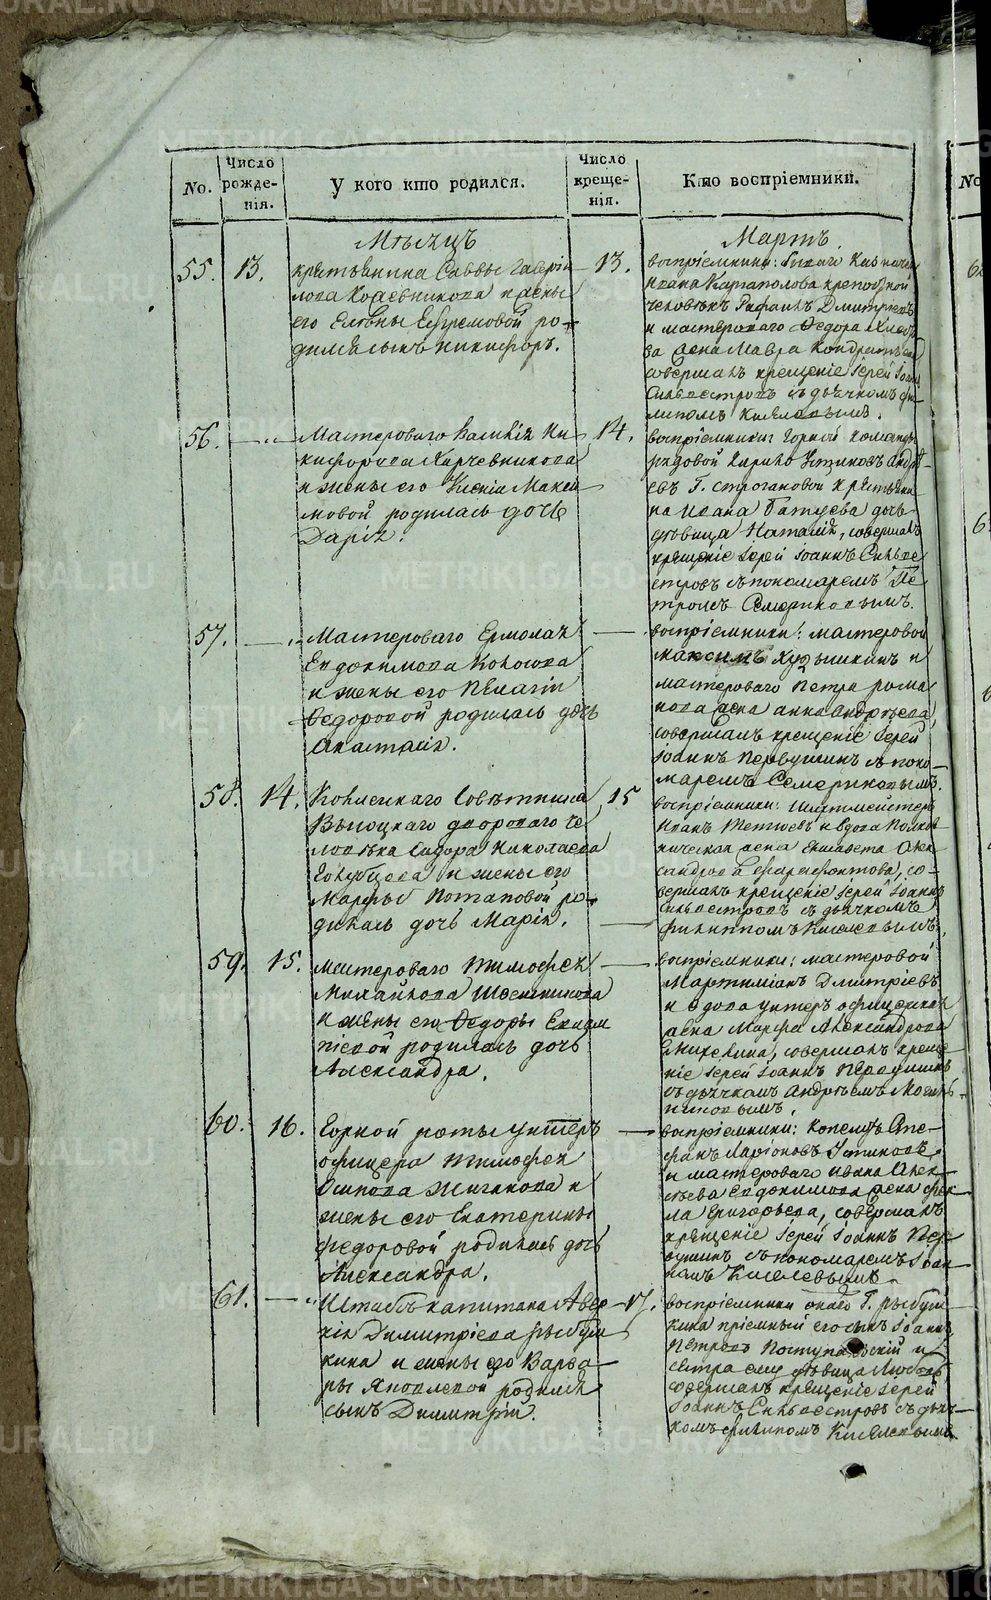 No.
Число рожде-нія.
У кого кто родился.
Число креще-нія.
Кто воспріемники.
Мѣсяцъ
Мартъ.
55. 13.
крестьянина Саввы Гаврiи
лова Кожевникова и жены
его Елены Ефремовой ро-
дился сынъ Никифоръ.
13.
воспріемники:
Ивана Карпаполова крепостной
человѣкъ Дмитріевъ
и мастероваго Ѳедора
ва жена Мавра Кондратьева
совершалъ крещеніе Іерей Іоаннъ
Сильвестровъ съ дьячкомъ Фи-
липомъ Киселевымъ.
56. — "
Мастероваго Василія Ни
кифорова Харчевникова
и жены его Ксеніи Макси
мовой родилась дочь
Дарія.
14.
воспріемники: Горной команды
рядовой Кирило Устиновъ Андре-
евъ Г. Строгановой крестьяни
на Ивана Батуева дочь
дѣвица Наталія, совершалъ
крещеніе Іерей Іоаннъ Сильве
стровъ съ пономаремъ Пе
тромъ Семериковымъ.
57. — "
Мастероваго Ермолая
Евдокимова
и жены его Пелагіи
Ѳедоровой родилась дочь
Анастасія.
—
воспріемники: мастеровой
Максимъ Кузьминъ и
мастероваго Петра Рома
нова жена Анна Андреева,
совершалъ крещеніе Іерей
Іоаннъ Первушинъ съ поно-
маремъ Семериковымъ.
58. 14.
Коллежскаго Совѣтника
Высоцкаго двороваго че
ловѣка Сидора Николаева
Голубцова и жены его
Марфы Потаповой ро-
дилась дочь Марія.
15
воспріемники: Шихтмейстеръ
Иванъ Тетюевъ и вдова Полков
ническая жена Елисавета Алек
сандрова, со-
вершалъ крещеніе Іерей Іоаннъ
Сильвестровъ съ дьячкомъ
Филиппомъ Киселевымъ.
59. 15.
Мастероваго Тимофея
Михайлова
и жены его Ѳедоры Евлам
піевой родилась дочь
Александра.
—
воспріемники: мастеровой
Мартиміанъ Дмитріевъ
и вдова унтеръ офицерская
жена Марфа Александрова
совершалъ креще-
ніе Іерей Іоаннъ Первушинъ
съ дьячкомъ Андреемъ Могиль-
никовымъ.
60. 16.
Горной роты унтеръ
офицера Тимофея
Осипова Жиганова и
жены его Екатерины
Федоровой родилась дочь
Александра.
—
воспріемники: Сте-
фанъ Ларіоновъ Устиновъ
и мастероваго Ивана Алек-
сѣева Евдокимова жена Фек-
ла Григорьева, совершалъ
крещеніе Іерей Іоаннъ Пер
вушинъ съ пономаремъ Іоан
номъ Киселевымъ
61. — "
Штабсъ капитана Авер
кія Димитріева Рыбуш
кина и жены его Варва
ры Яковлевой родился
сынъ Димитрій.
17.
воспріемники онаго Г. Рыбуш
кина пріемный его сынъ Іоаннъ
Петровъ Поступальскій и
сестра ему дѣвица Любовь
совершалъ крещеніе Іерей
Іоаннъ Сильвестровъ съ дьяч-
комъ Филипомъ Киселевымъ
METRIKI.GASO-URAL.RU